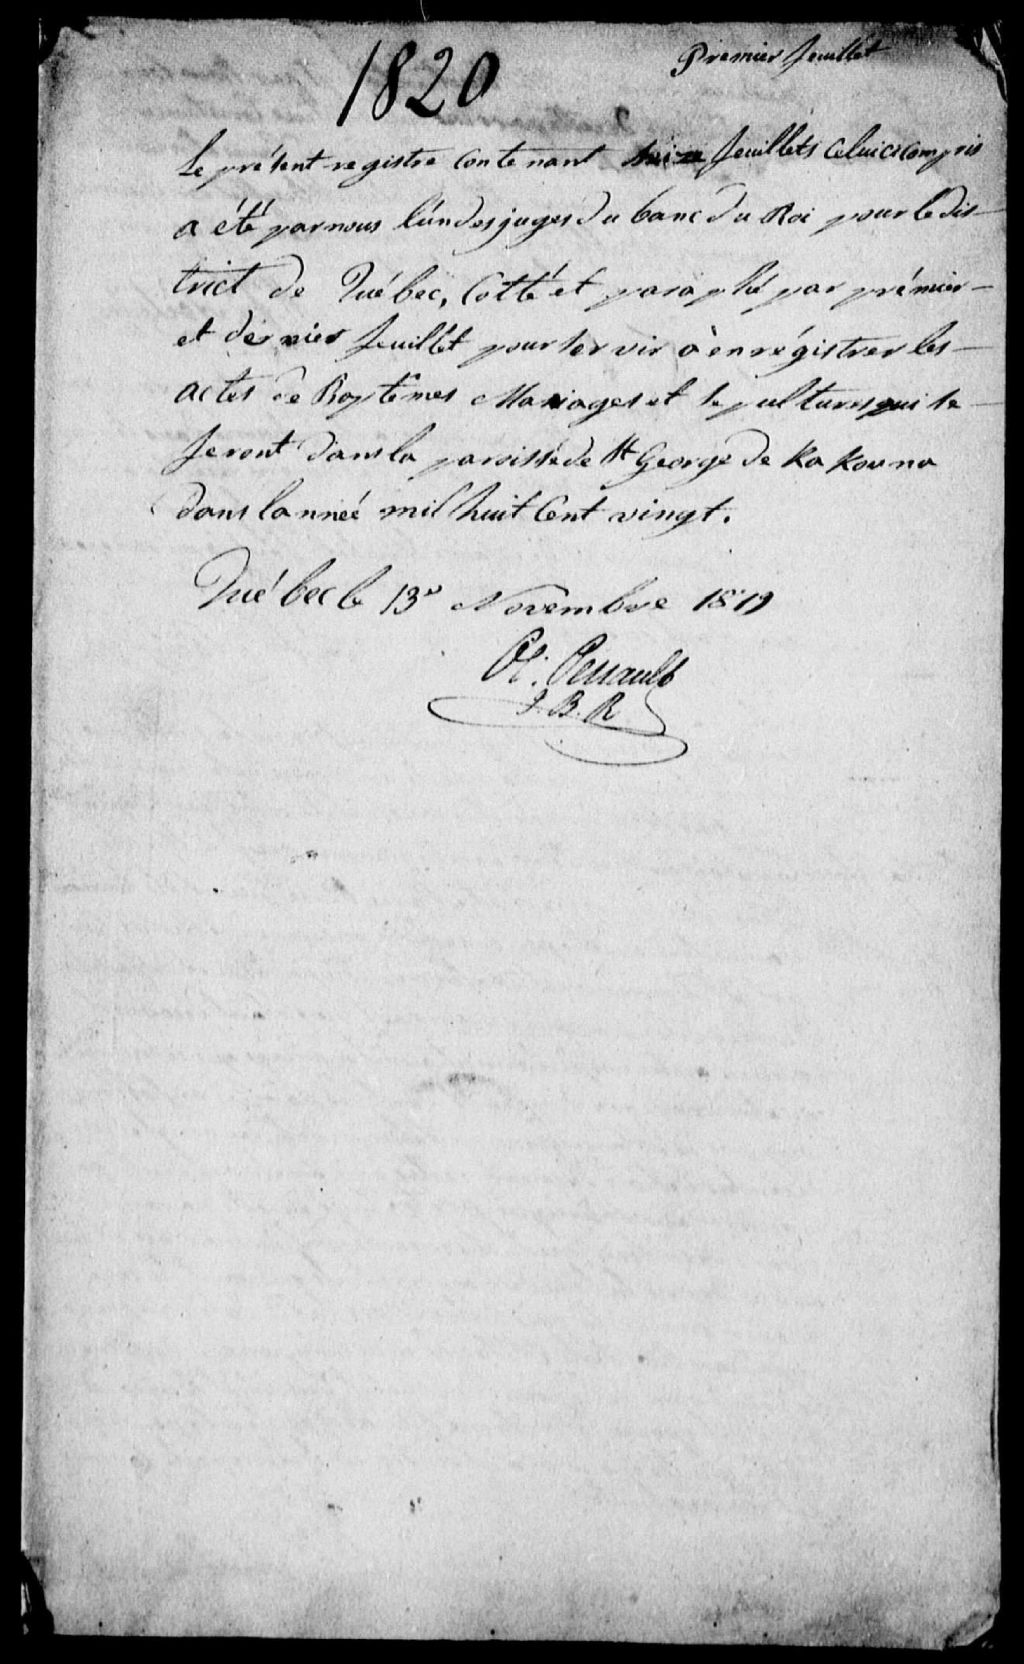 1820
Premier feuillet
Le présent registre contenant seize feuillets celuici compris
a été par nous l'un des juges du banc du Roi pour le dis-
trict de Québec, Cotté et paraphé par prémier
et dernier feuillét pour servir à enrégistrer les
actes de Baptêmes Mariages et sepultures qui se
feront dans la paroisse de St George de Kakouna
dans l'année mil huit Cent vingt.
Québec le 13 Novembre 1819
Ol. Perrault
J.B.R